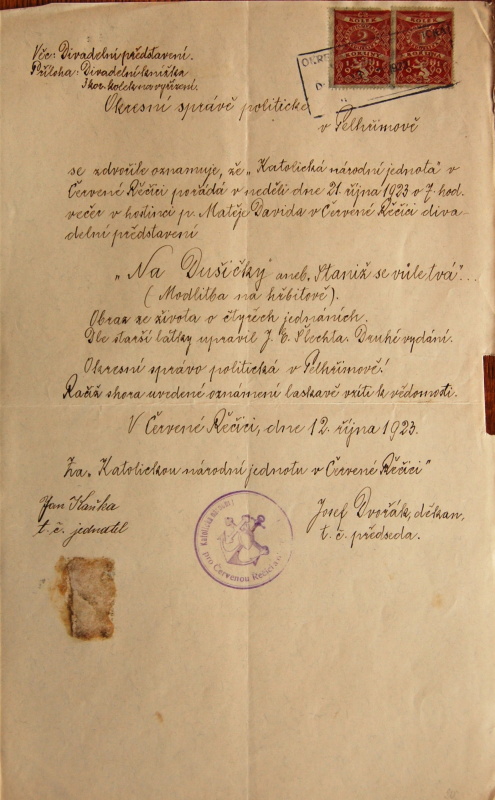 Věc: Divadelní představení.
Příloha: Divadelní knížka
1 kor. kolek na vyřízení.
Okresní správě politické
v Pelhřimově
se zdvořile oznamuje, že „Katolická národní jednota" v
Červené Řečici pořádá v neděli dne 21. října 1923 o 7 hod.
večer v hostinci p. Matěje Davida v Červené Řečici diva-
delní představení
„Na Dušičky" aneb „Staniž se vůle tvá"...
(Modlitba na hřbitově).
Obraz ze života o čtyřech jednáních.
Dle starší látky upravil J. E. Šlechta. Druhé vydání.
Okresní správo politická v Pelhřimově!
Račiž shora uvedené oznámení laskavě vzíti k vědomosti.
V Červené Řečici, dne 12. října 1923.
Za „Katolickou národní jednotu v Červené Řečici"
Jan Kaňka
t. č. jednatel
Josef Dvořák, děkan,
t. č. předseda.
pro Červenou Řečici
KOLEK
2
KOLEK
1